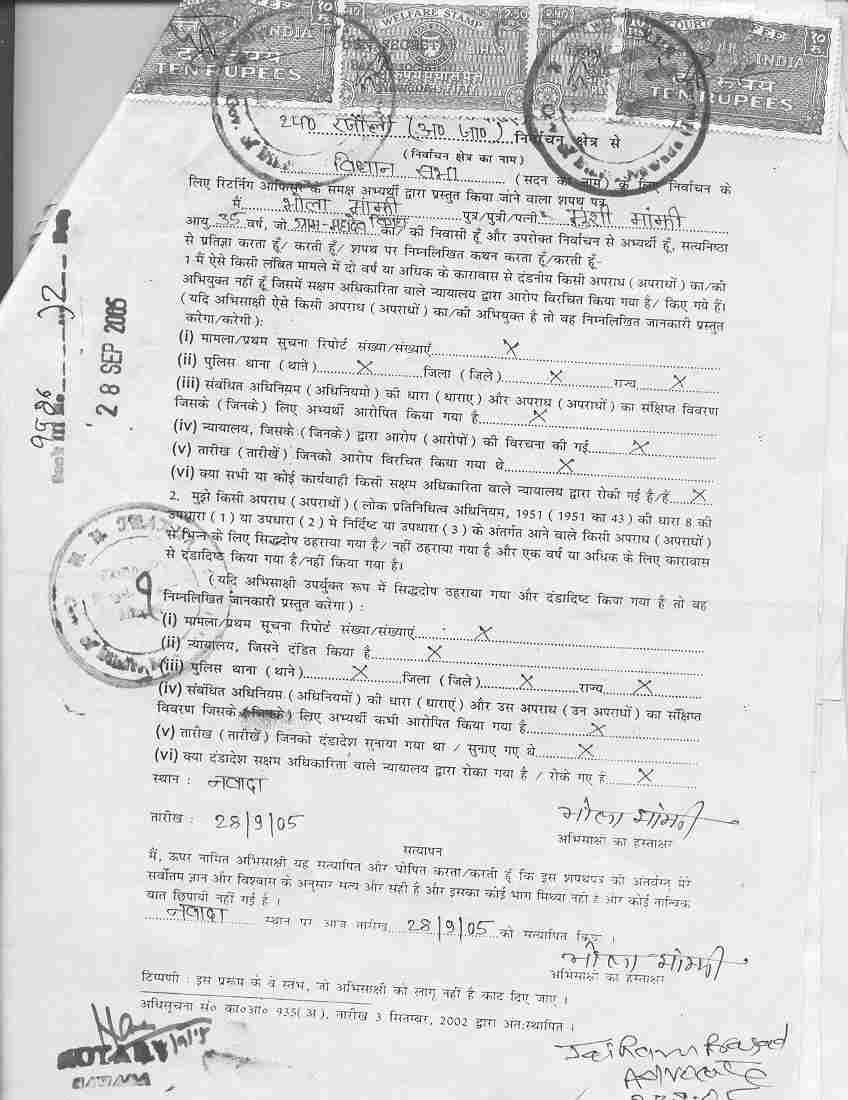 INDIA
TEN RUPEES
WELFARE STAMP
2.50
BIHAR
COURT FEE
INDIA
रूपये
TEN RUPEES
240 रजौली (अ० जा०) निर्वाचन क्षेत्र से
(निर्वाचन क्षेत्र का नाम)
विधान सभा (सदन का नाम) के लिए निर्वाचन के
लिए रिटर्निंग आफिसर के समक्ष अभ्यर्थी द्वारा प्रस्तुत किया जाने वाला शपथ पत्र
मैं भोला मांझी पुत्र/पुत्री/पत्नी मुंशी मांझी
आयु 35 वर्ष, जो ग्राम का/ की निवासी हूँ और उपरोक्त निर्वाचन से अभ्यर्थी हूँ, सत्यनिष्ठा
से प्रतिज्ञा करता हूँ/ करती हूँ/ शपथ पर निम्नलिखित कथन करता हूँ/करती हूँ:-
1 मैं ऐसे किसी लंबित मामले में दो वर्ष या अधिक के कारावास से दंडनीय किसी अपराध (अपराधों) का/की
अभियुक्त नहीं हूँ जिसमें सक्षम अधिकारिता वाले न्यायालय द्वारा आरोप विरचित किया गया है/ किए गये हैं।
(यदि अभिसाक्षी ऐसे किसी अपराध (अपराधों) का/की अभियुक्त है तो वह निम्नलिखित जानकारी प्रस्तुत
करेगा/करेगी):
28 SEP 2005
(i) मामला/प्रथम सूचना रिपोर्ट संख्या/संख्याएँ X
(ii) पुलिस थाना (थाने) X जिला (जिले) X राज्य X
(iii) संबंधित अधिनियम (अधिनियमो) की धारा (धाराए) और अपराध (अपराधों) का संक्षिप्त विवरण
जिसके (जिनके) लिए अभ्यर्थी आरोपित किया गया है X
(iv) न्यायालय, जिसके (जिनके) द्वारा आरोप (आरोपों) की विरचना की गई X
(v) तारीख (तारीखें) जिनको आरोप विरचित किया गया थे X
(vi) क्या सभी या कोई कार्यवाही किसी सक्षम अधिकारिता वाले न्यायालय द्वारा रोकी गई है/हैं X
2. मुझे किसी अपराध (अपराधों) (लोक प्रतिनिधित्व अधिनियम, 1951 (1951 का 43) की धारा 8 की
उपधारा (1) या उपधारा (2) मे निर्दिष्ट या उपधारा (3) के अंतर्गत आने वाले किसी अपराध (अपराधों)
से भिन्न के लिए सिद्धदोष ठहराया गया है/ नहीं ठहराया गया है और एक वर्ष या अधिक के लिए कारावास
से दंडादिष्ट किया गया है/नहीं किया गया है।
(यदि अभिसाक्षी उपर्युक्त रूप में सिद्धदोष ठहराया गया और दंडादिष्ट किया गया है तो वह
निम्नलिखित जानकारी प्रस्तुत करेगा) :
(i) मामला/प्रथम सूचना रिपोर्ट संख्या/संख्याएं X
(ii) न्यायालय, जिसने दंडित किया है X
(iii) पुलिस थाना (थाने) X जिला (जिले) X राज्य X
(iv) संबंधित अधिनियम (अधिनियमों) की धारा (धाराएं) और उस अपराध (उन अपराधों) का संक्षिप्त
विवरण जिसके (जिनके) लिए अभ्यर्थी कभी आरोपित किया गया है X
(v) तारीख (तारीखें) जिनको दंडादेश सुनाया गया था / सुनाए गए थे X
(vi) क्या दंडादेश सक्षम अधिकारिता वाले न्यायालय द्वारा रोका गया है / रोके गए हैं X
स्थान : नवादा
तारीख : 28/9/05
भोला मांझी
अभिसाक्षी का हस्ताक्षर
सत्यापन
मैं, ऊपर नामित अभिसाक्षी यह सत्यापित और घोषित करता/करती हूँ कि इस शपथपत्र की अंतर्वस्तु मेरे
सर्वोत्तम ज्ञान और विश्वास के अनुसार सत्य और सही है और इसका कोई भाग मिथ्या नही है और कोई तात्विक
बात छिपायी नहीं गई है ।
नवादा स्थान पर आज तारीख 28/9/05 को सत्यापित किए ।
भोला मांझी
अभिसाक्षी का हस्ताक्षर
टिप्पणी : इस प्ररूप के वे स्तंभ, जो अभिसाक्षी को लागू नहीं है काट दिए जाए ।
अधिसूचना सं० का०आ० 935(अ), तारीख 3 सितम्बर, 2002 द्वारा अंत:स्थापित ।
NOTARY
Jai Ram Prasad
Advocate